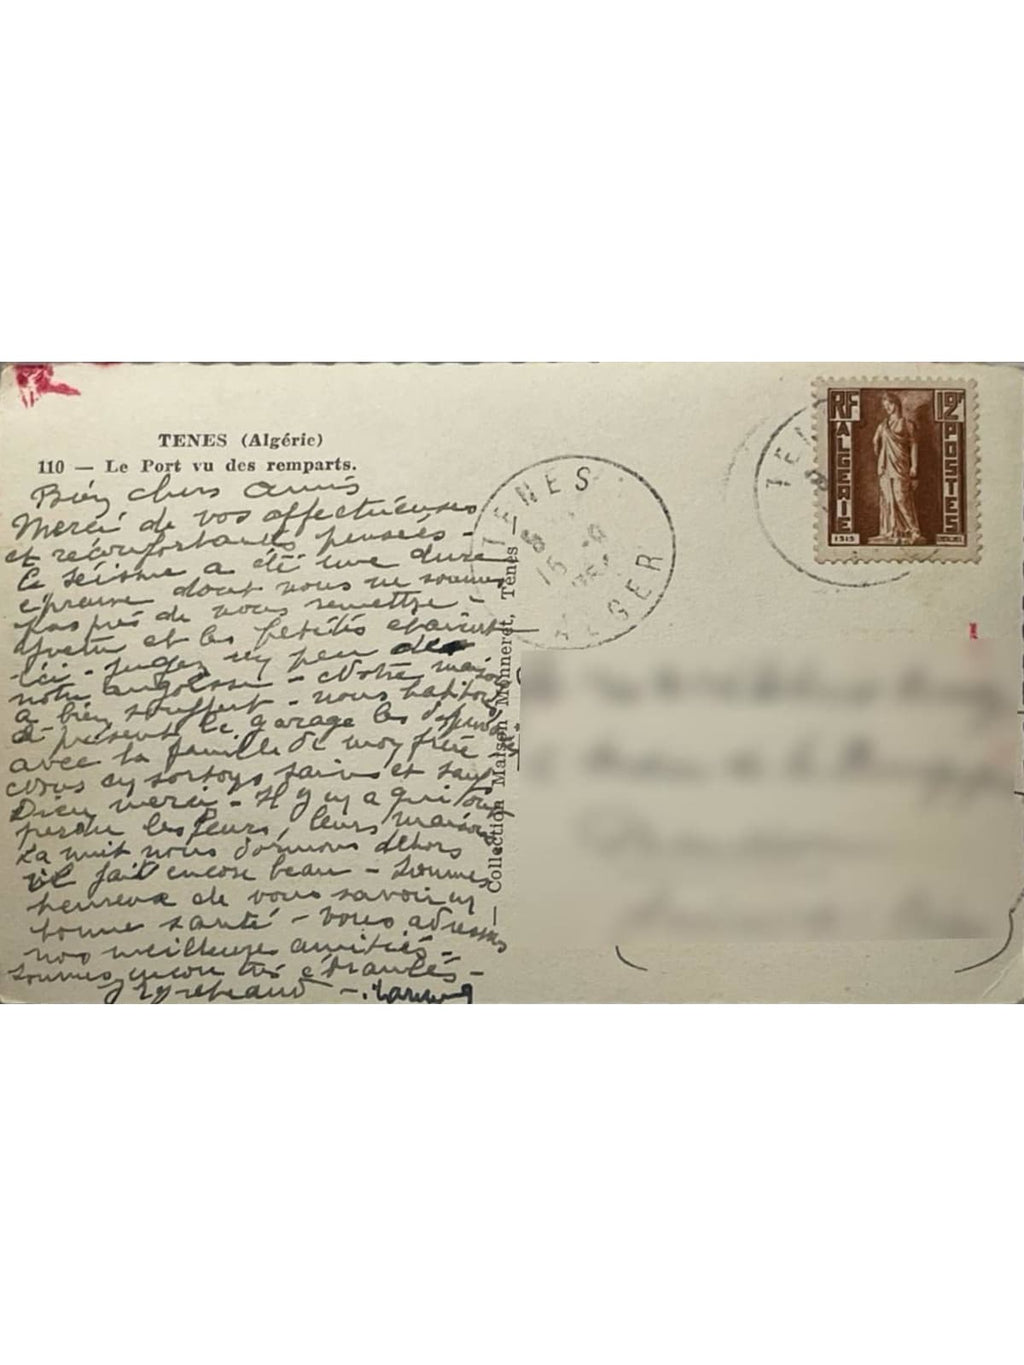 TENES (Algérie)
110 — Le Port vu des remparts.
Bien chers amis
Merci de vos affectueuses
et réconfortantes pensées -
Ce séisme a été une dure
épreuve dont nous ne sommes
pas près de nous remettre -
Yvette et les petites étaient
ici - jugez un peu de
notre angoisse - Notre maison
a bien souffert - nous habitons
à présent le garage les
avec la famille de mon frère
Nous en sortons sains et saufs
Dieu merci - Il y en a qui ont
perdu les leurs, leurs maisons
La nuit nous dormons dehors
il fait encore beau - Sommes
heureux de vous savoir en
bonne santé - Vous adressons
nos meilleures amitiés -
Sommes encore très ébranlés -
— Collection Maison Monneret, Ténès —
TENES
ALGER
RF
12F
ALGERIE
POSTES
TEN